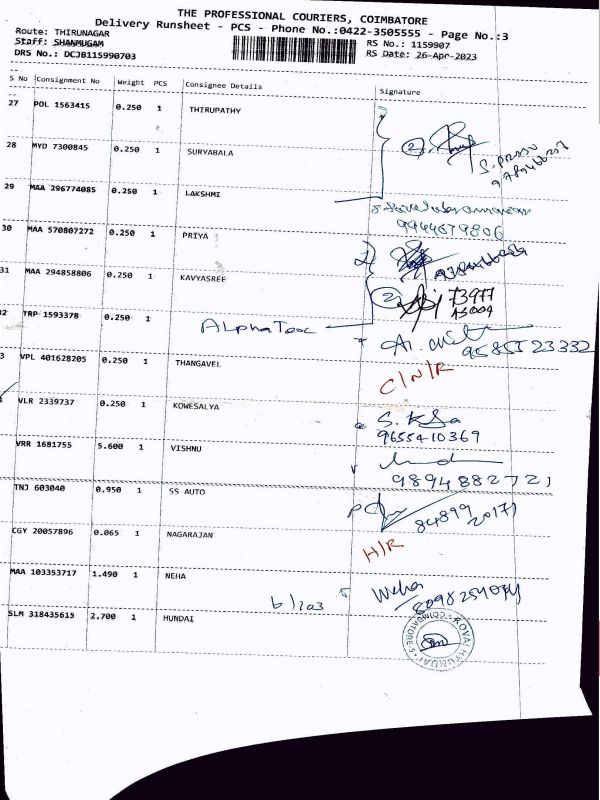 THE PROFESSIONAL COURIERS, COIMBATORE
Delivery Runsheet - PCS - Phone No.:0422-3505555 - Page No.:3
Route: THIRUNAGAR
RS No.: 1159907
Staff: SHANMUGAM
RS Date: 26-Apr-2023
DRS No.: DCJB115990703
S No Consignment No Weight PCS Consignee Details Signature
27 POL 1563415 0.250 1 THIRUPATHY
28 MYD 7300845 0.250 1 SURYABALA
29 MAA 296774085 0.250 1 LAKSHMI
9944679806
30 MAA 570807272 0.250 1 PRIYA
31 MAA 294858806 0.250 1 KAVYASREE
2 73977
73009
2 TRP 1593378 0.250 1 Alpha Tex
9585523332
3 VPL 401628205 0.250 1 THANGAVEL
C/N/R
VLR 2339737 0.250 1 KOWESALYA
9655410369
VRR 1681755 5.600 1 VISHNU
9894882721
TNJ 603040 0.950 1 SS AUTO
84899 20171
CGY 20057896 0.065 1 NAGARAJAN
H/R
MAA 103353717 1.490 1 NEHA
Neha
8098254074
6/203
SLM 318435615 2.700 1 HUNDAI
KOVAI HYUNDAI COIMBATORE